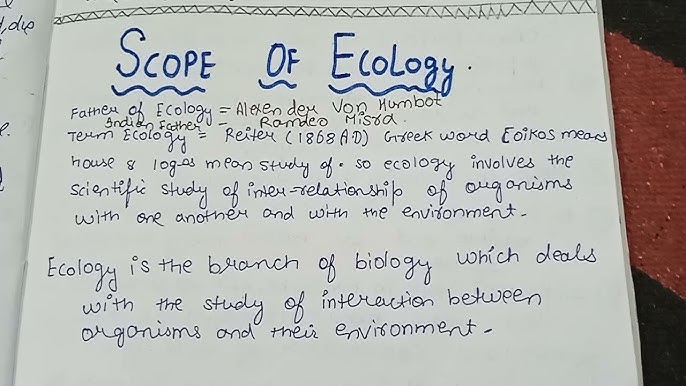 SCOPE OF ECOLOGY.
Father of Ecology = Alexender Von Humbot
Indian Father = Ramdeo Misra.
Term Ecology = Reiter (1868 AD) Greek word Eoikos means
house & logos mean study of. so ecology involves the
scientific study of inter-relationship of organisms
with one another and with the environment.
Ecology is the branch of biology which deals
with the study of interaction between
organisms and their environment.